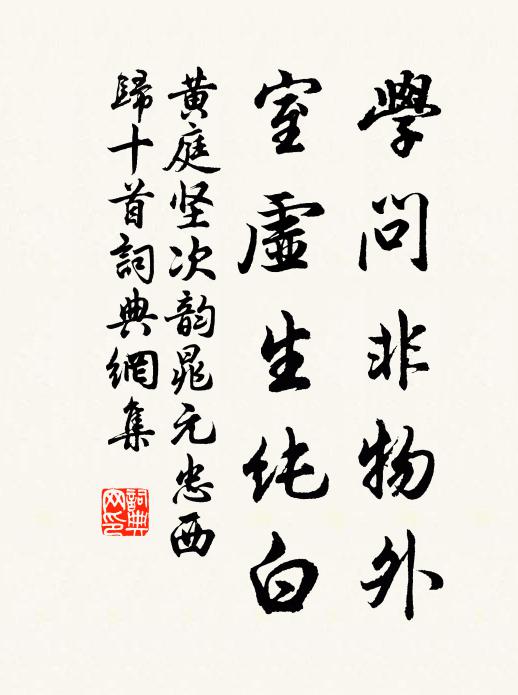 學問非物外
室虛生纯白
黄庭坚次韵晁元忠西
歸十首詞典網集
詞典网印